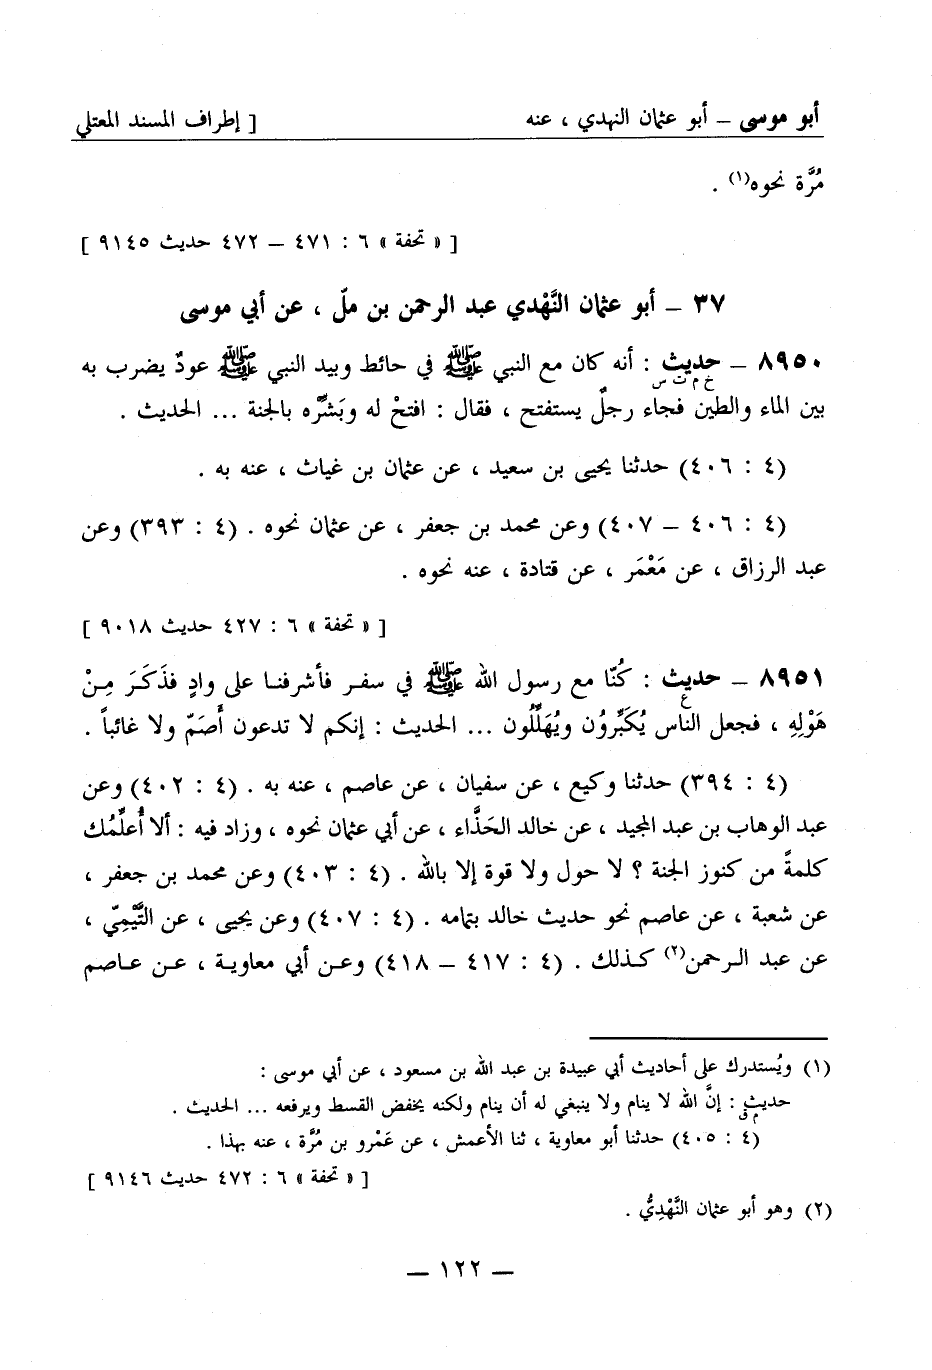 أبو موسى – أبو عثمان النهدي ، عنه [ إطراف المسند المعتلي
مُرَّة نحوه(١) .
[ « تحفة » ٦ : ٤٧١ – ٤٧٢ حديث ٩١٤٥ ]
٣٧ – أبو عثمان النَّهْدي عبد الرحمن بن ملّ ، عن أبي موسى
٨٩٥٠ – حديث : أنه كان مع النبي ﷺ في حائط وبيد النبي ﷺ عودٌ يضرب به
خ م ت س
بين الماء والطين فجاء رجلٌ يستفتح ، فقال : افتحْ له وبَشِّره بالجنة ... الحديث .
(٤ : ٤٠٦) حدثنا يحيى بن سعيد ، عن عثمان بن غياث ، عنه به .
(٤ : ٤٠٦ – ٤٠٧) وعن محمد بن جعفر ، عن عثمان نحوه . (٤ : ٣٩٣) وعن
عبد الرزاق ، عن مَعْمَر ، عن قتادة ، عنه نحوه .
[ « تحفة » ٦ : ٤٢٧ حديث ٩٠١٨ ]
٨٩٥١ – حديث : كُنّا مع رسول الله ﷺ في سفر فأشرفنا على وادٍ فذَكَرَ مِنْ
ع
هَوْلِهِ ، فجعل الناس يُكَبِّروُن ويُهَلِّلُون ... الحديث : إنكم لا تدعون أَصَمّ ولا غائباً .
(٤ : ٣٩٤) حدثنا وكيع ، عن سفيان ، عن عاصم ، عنه به . (٤ : ٤٠٢) وعن
عبد الوهاب بن عبد المجيد ، عن خالد الحَذَّاء ، عن أبي عثمان نحوه ، وزاد فيه : ألا أُعلِّمُك
كلمةً من كنوز الجنة ؟ لا حول ولا قوة إلا بالله . (٤ : ٤٠٣) وعن محمد بن جعفر ،
عن شعبة ، عن عاصم نحو حديث خالد بتمامه . (٤ : ٤٠٧) وعن يحيى ، عن التَّيْمِيّ ،
عن عبد الرحمن(٢) كذلك . (٤ : ٤١٧ – ٤١٨) وعن أبي معاوية ، عن عاصم
(١) ويُستدرك على أحاديث أبي عبيدة بن عبد الله بن مسعود ، عن أبي موسى :
حديث : إنَّ الله لا ينام ولا ينبغي له أن ينام ولكنه يخفض القسط ويرفعه ... الحديث .
م ق
(٤ : ٤٠٥) حدثنا أبو معاوية ، ثنا الأعمش ، عن عَمْرو بن مُرَّة ، عنه بهذا .
[ « تحفة » ٦ : ٤٧٢ حديث ٩١٤٦ ]
(٢) وهو أبو عثمان النَّهْدِيُّ .
– ١٢٢ –